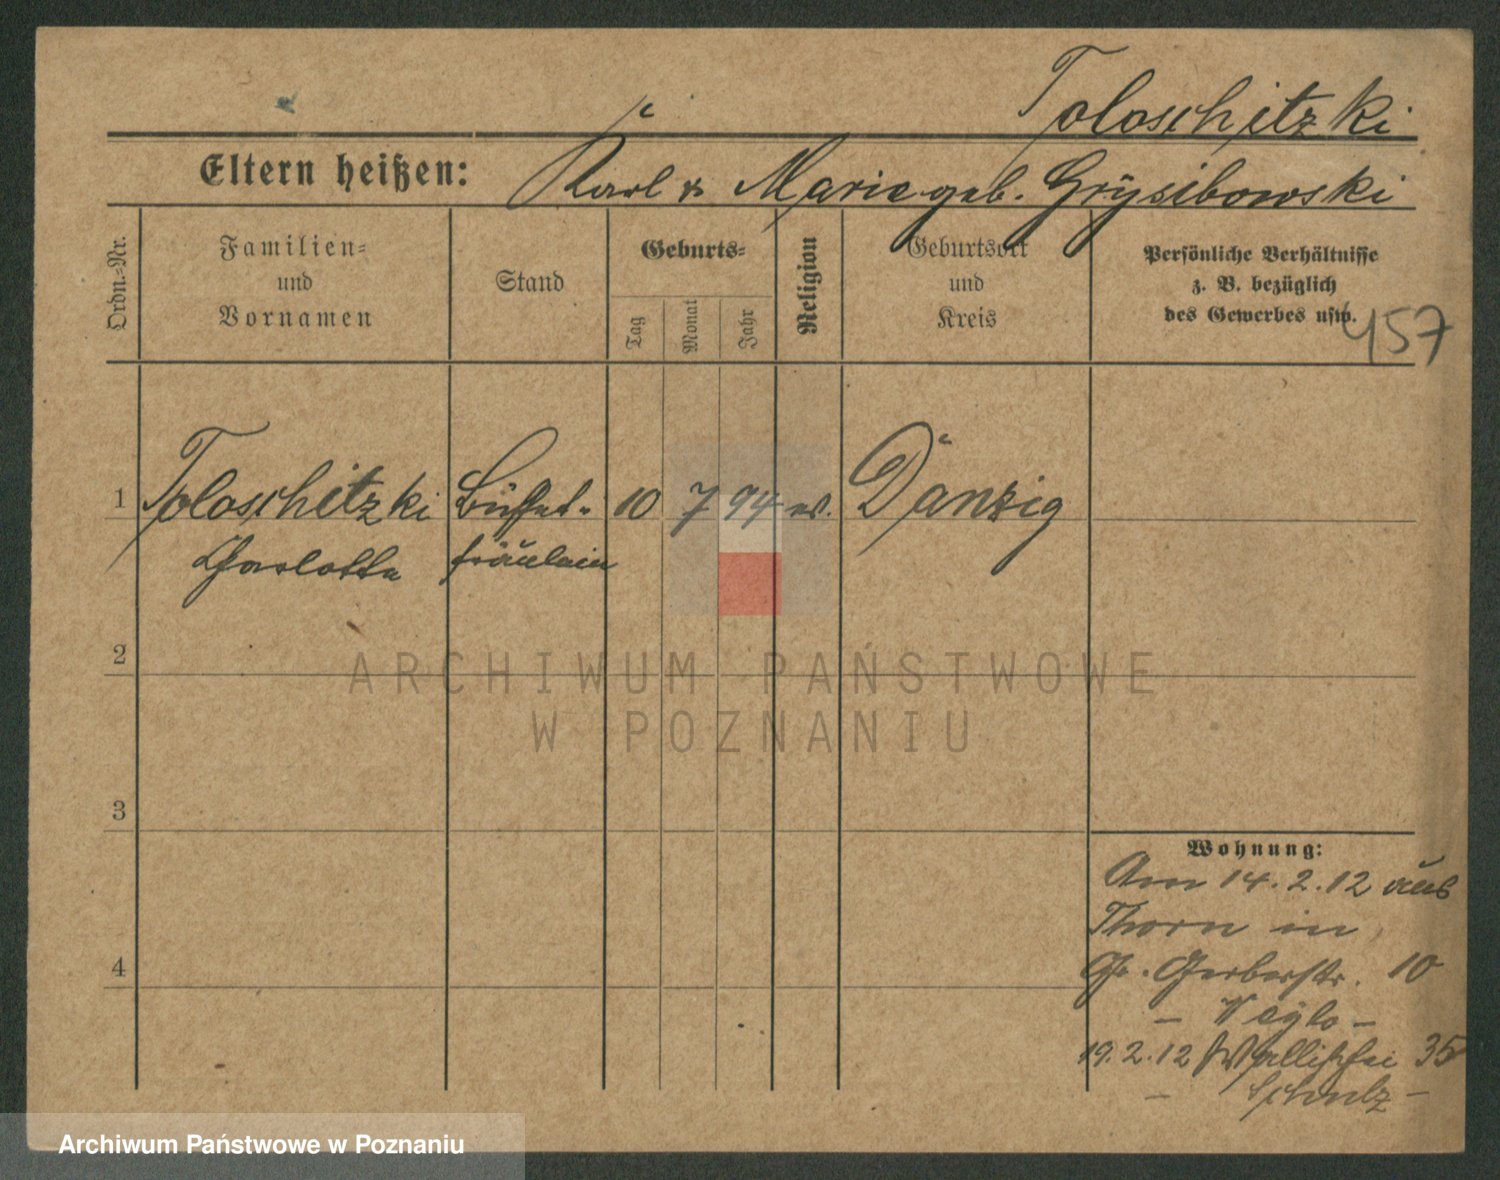 Toloschitzki
Eltern heißen: Karl & Marie geb. Grÿsibowski
Ordn.-Nr.
Familien-
und
Vornamen
Stand
Geburts-
Tag
Monat
Jahr
Religion
Geburtsort
und
Kreis
Persönliche Verhältnisse
z. B. bezüglich
des Gewerbes usw.
457
1 Toloschitzki Büffet- 10 7 94 ev. Danzig
Charlotte fräulein
2
ARCHIWUM PAŃSTWOWE
W POZNANIU
3
Wohnung:
Am 14.2.12 aus
Thorn in
4
Gr. Gerberstr. 10
19.2.12 Wallischei 35
– Schulz –
Archiwum Państwowe w Poznaniu